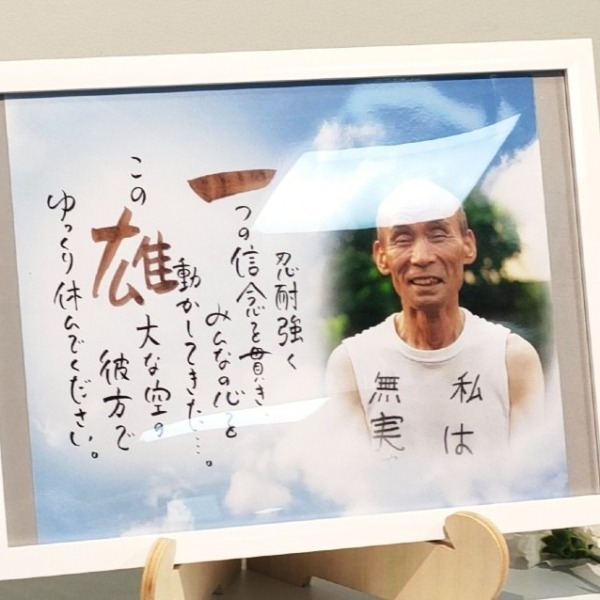 忍耐強く
一つの信念を貫き、
みんなの心を
動かしてきた…。
この雄大な空の
彼方で
ゆっくり休んでください。
私は
無実